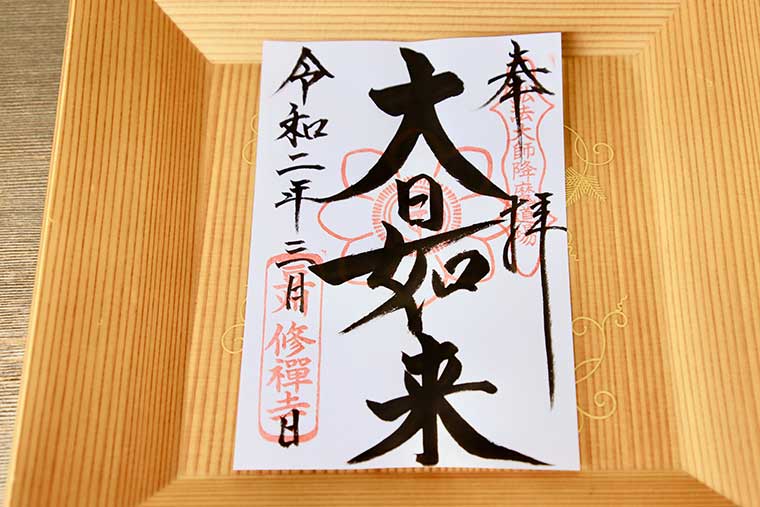 奉拝
弘法大師降魔道場
大日如来
令和二年三月 日
修禪寺